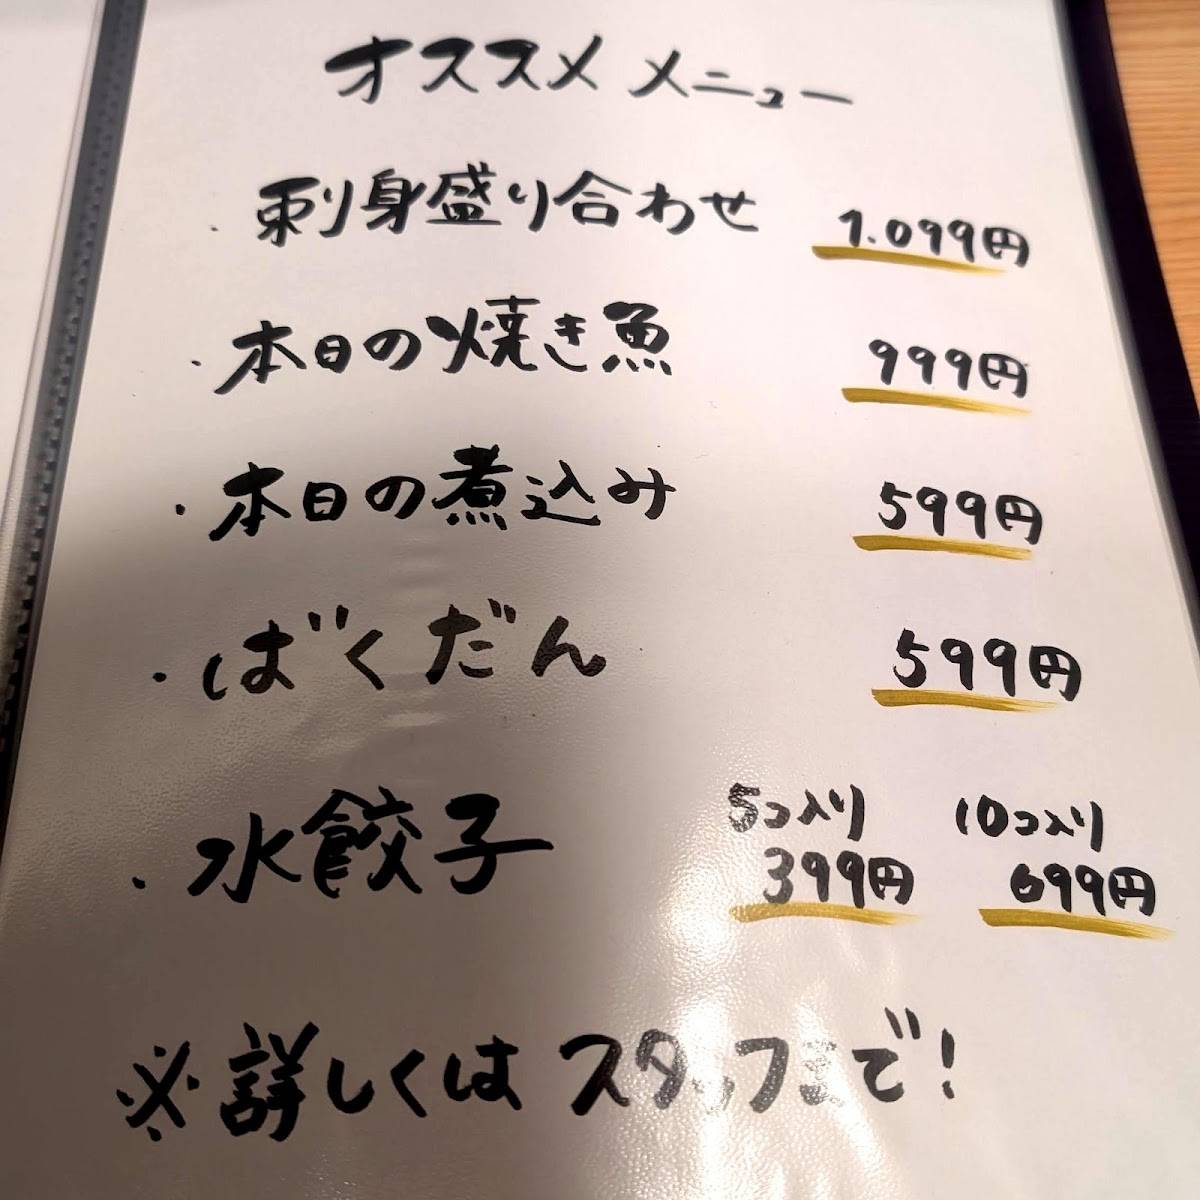 オススメ メニュー
・刺身盛り合わせ 1.099円
・本日の焼き魚 999円
・本日の煮込み 599円
・ばくだん 599円
・水餃子 5コ入り 399円 10コ入り 699円
※詳しくはスタッフまで!